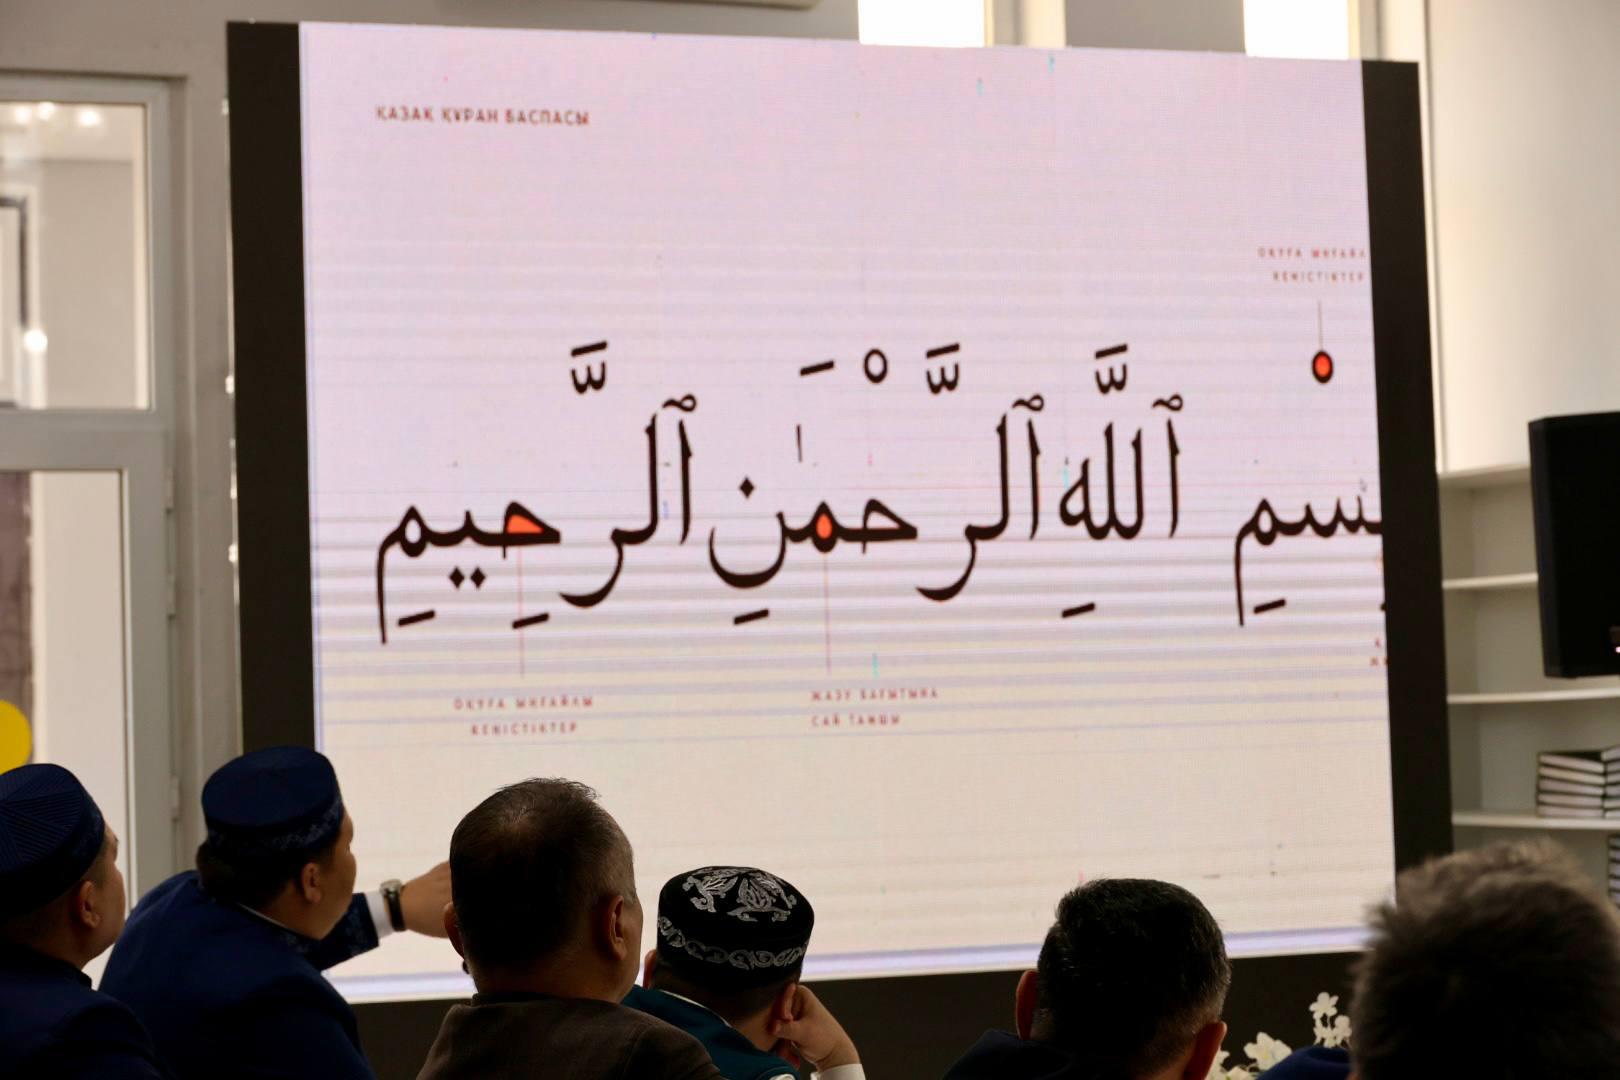 ҚАЗАҚ ҚҰРАН БАСПАСЫ
ОҚУҒА ЫҢҒАЙЛ
КЕҢІСТІКТЕР
بِسْمِ ٱللَّهِ ٱلرَّحْمَـٰنِ ٱلرَّحِيمِ
ОҚУҒА ЫҢҒАЙЛЫ
КЕҢІСТІКТЕР
ЖАЗУ БАҒЫТЫНА
САЙ ТАМШЫ